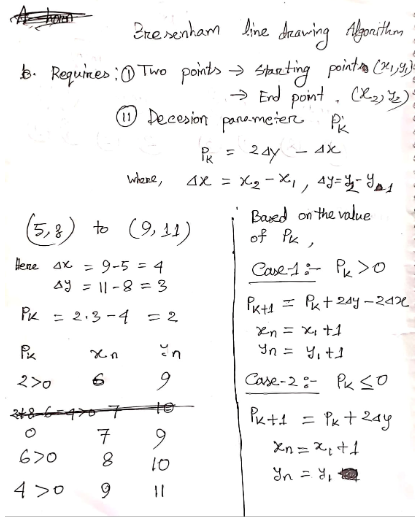 Bresenham line drawing Algorithm
b. Requires: (i) Two points → starting points (x₁,y₁)
→ End point. (x₂, y₂)
(ii) Decesion parameter Pₖ
Pₖ = 2Δy - Δx
where, Δx = x₂-x₁, Δy = y₂-y₁
(5,8) to (9,11)
Here Δx = 9-5 = 4
Δy = 11-8 = 3
Pₖ = 2·3-4 = 2
Pₖ xn yn
2>0 6 9
0 7 9
6>0 8 10
4>0 9 11
Based on the value
of Pₖ,
Case-1:- Pₖ>0
Pₖ₊₁ = Pₖ+2Δy-2Δx
xn = x₁+1
yn = y₁+1
Case-2:- Pₖ≤0
Pₖ₊₁ = Pₖ+2Δy
xn = x₁+1
yn = y₁